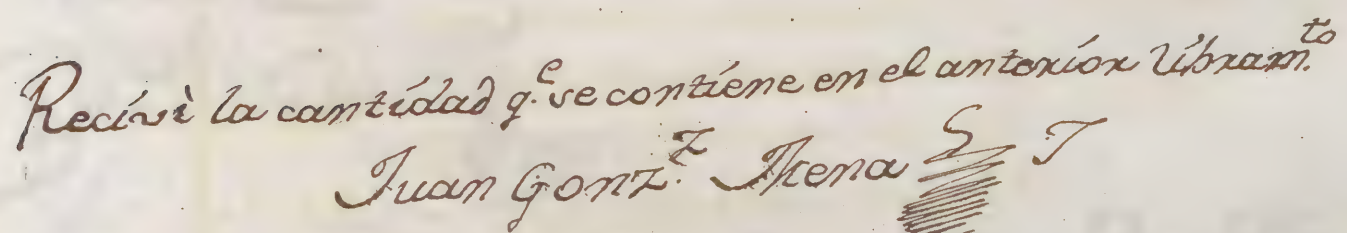 Recivì la cantidad q.e se contiene en el anterior libram.to
Juan Gonz.z